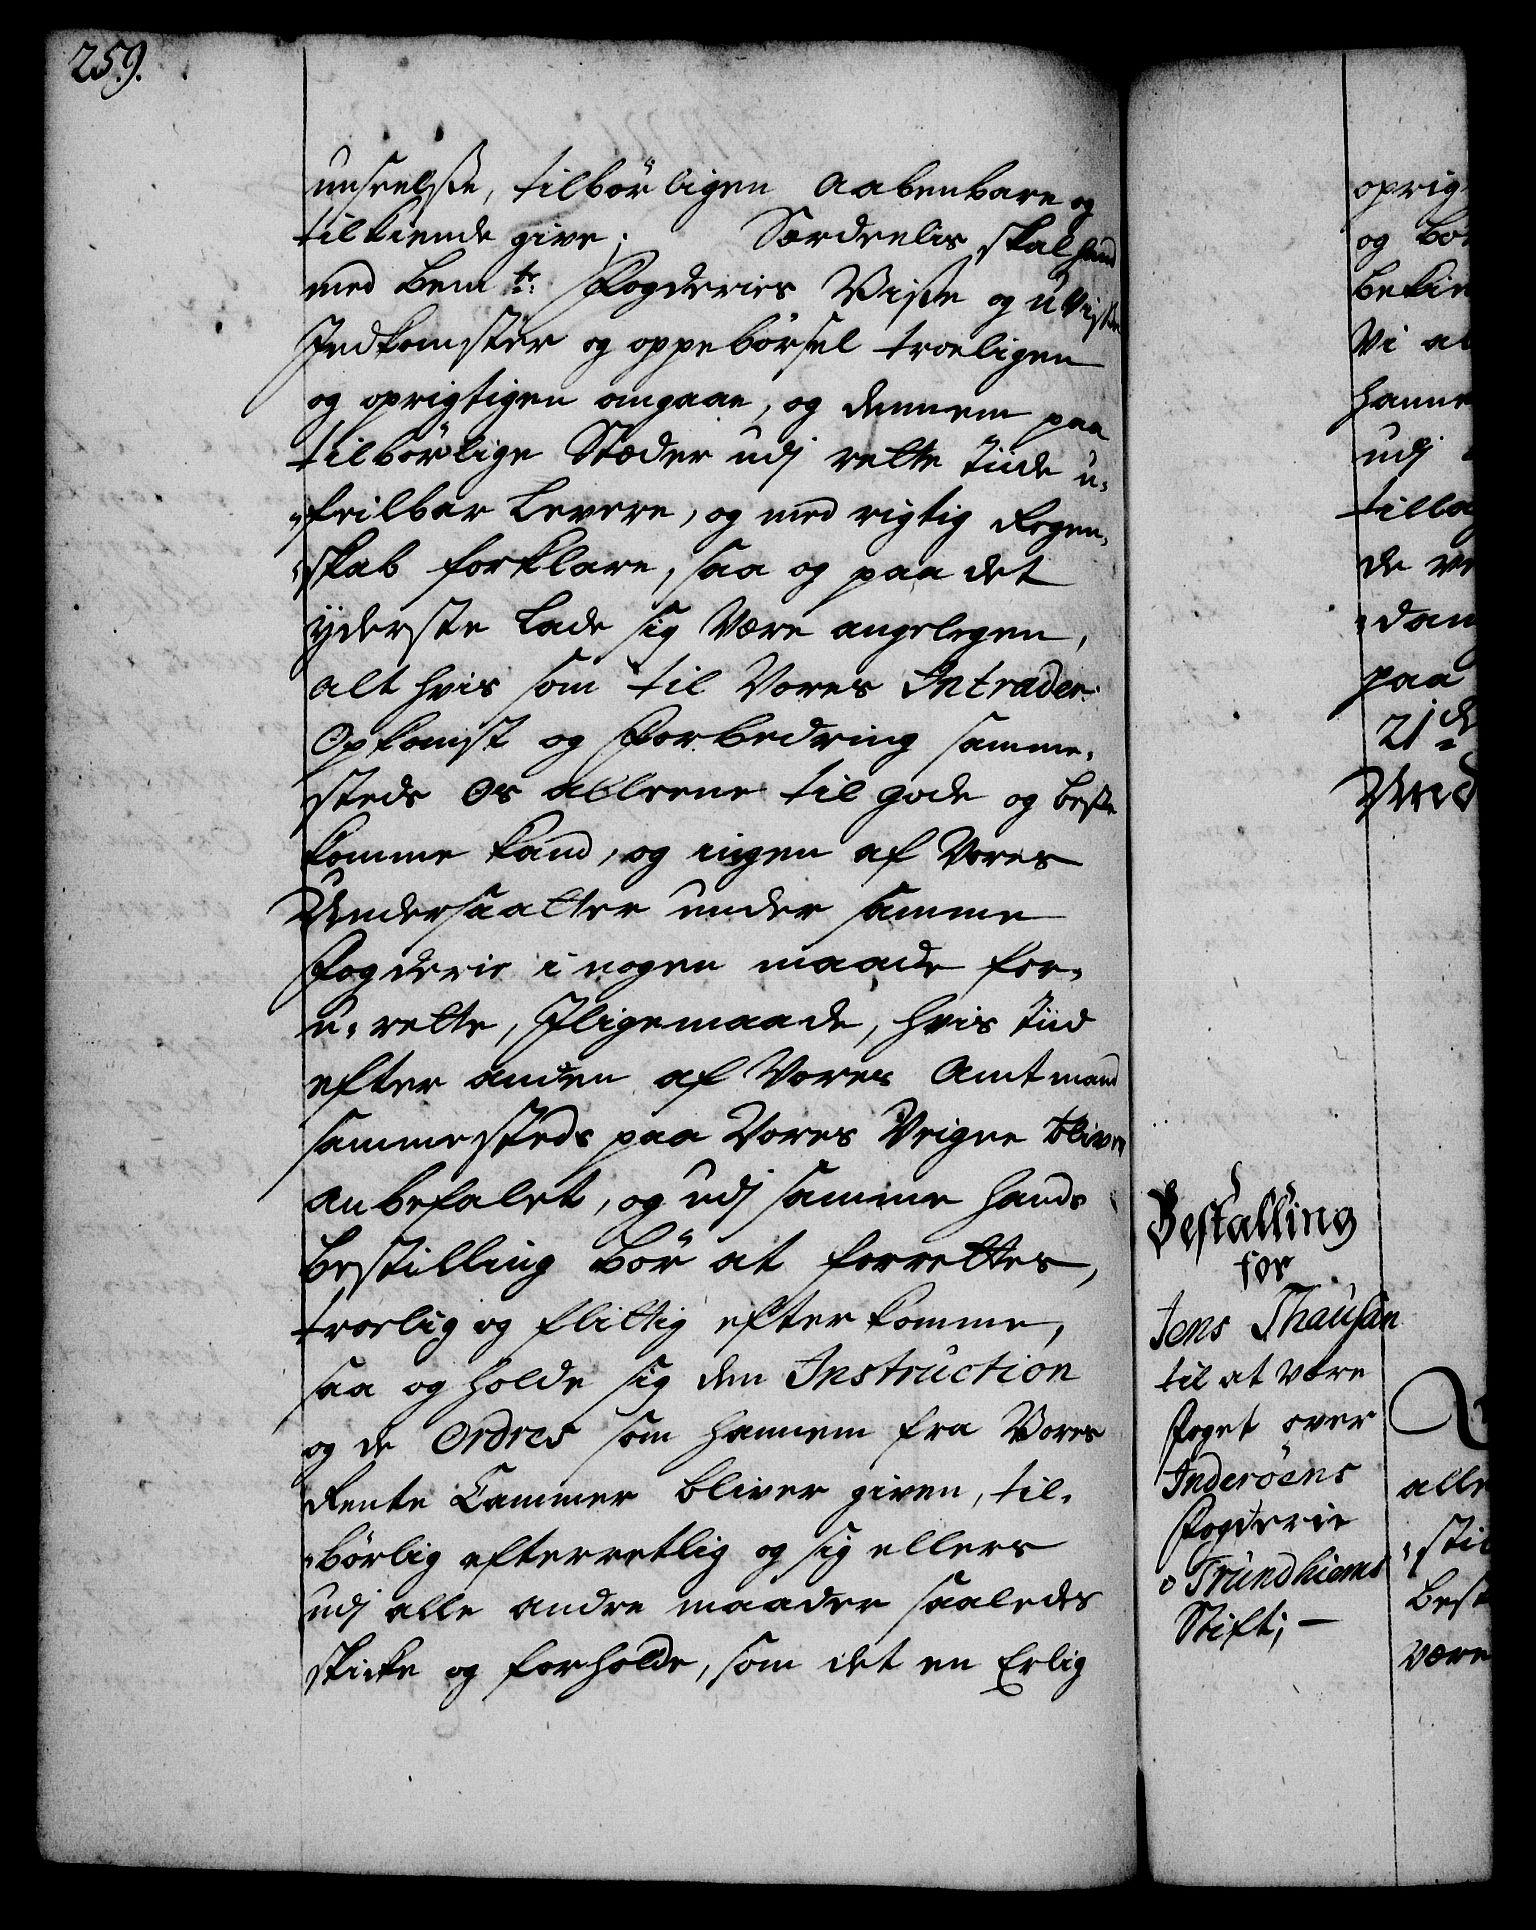 259.
unseelste, tilbörligen aabenbare og
tilkiende give; Særdeelis skal hand
med bem.te Fogderies Visse og uvisse
Indkomster og oppebörsel troeligen
og oprigtigen omgaae, og dennem paa
tilbörlige Stæder udj rette tiide u-
feilbar levere, og med rigtig Regen-
skab forklare, saa og paa det
yderste lade sig være angelegen,
alt hvis som til Vores Intrader
Opkomst og Forbedring samme-
steds Os allene til gode og beste
komme kand, og ingen af Vores
Undersaatter under samme
Fogderie i nogen maade for-
u-rette, Iligemaade, hvis tiid
efter anden af Vores Amtmand
sammesteds paa Vores Veigne bliver
anbefalet, og udj samme hands
bestilling bör at forrettes,
troelig og flittig efterkomme,
saa og holde sig den Instruction
og de Ordres som hannem fra Vores
Rente Cammer bliver given, til-
börlig efterretlig og sig ellers
udj alle andre maader saaledes
skicke og forholde, som det en Erlig
oprig
og bör
bekien
Vi al
hanne
udj
tillag
de ve
dan
paa
21de
Und
Bestalling
for
Jens Thausan
til at være
Foget over
Inderöens
Fogderie
i Trundhiems
Stift; —
alle
stil
best
være